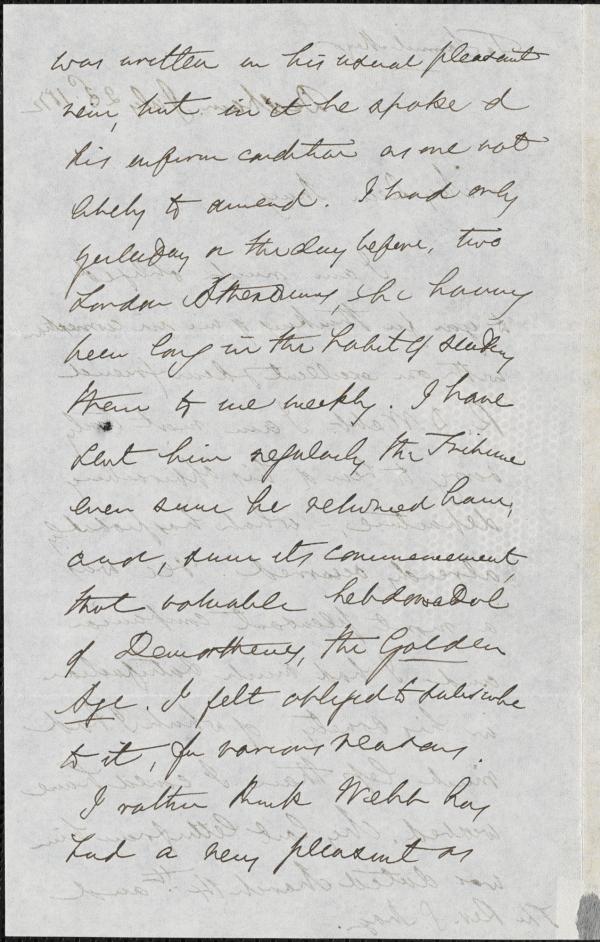 was written in his usual pleasant
vein, but in it he spoke of
his infirm condition as one not
likely to amend. I had only
yesterday or the day before, two
London Athenæums, he having
been long in the habit of sending
them to me weekly. I have
sent him regularly the Tribune
ever since he returned home,
and, since its commencement,
that valuable hebdomadal
of Demosthenes, the Golden
Age. I felt obliged to subscribe
to it, for various reasons.
I rather think Webb has
had a very pleasant as